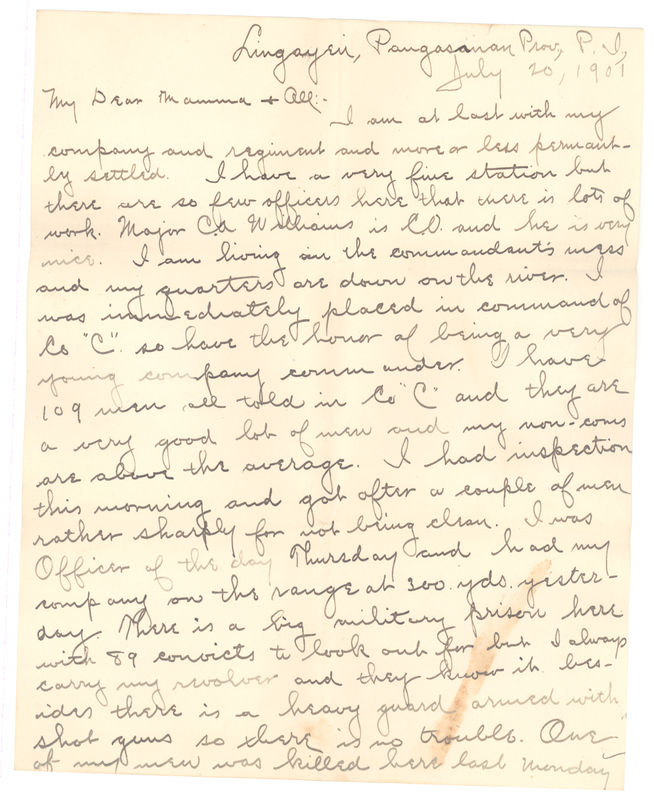 Lingayen, Pangasanan Prov, P. I,
July 20, 1901
My Dear Mamma + All:-
I am at last with my
company and regiment and more or less permant-
ly settled. I have a very fine station but
there are so few officers here that there is lots of
work. Major CA Williams is C.O. and he is very
nice. I am living in the commandant's mess
and my quarters are down on the river. I
was immediately placed in command of
Co "C". so have the honor of being a very
young company commander. I have
109 men all told in Co "C" and they are
a very good lot of men and my non-coms
are above the average. I had inspection
this morning and got after a couple of men
rather sharply for not being clean. I was
Officer of the day Thursday and had my
company on the range at 300 yds. yester-
day. There is a big military prison here
with 89 convicts to look out for but I always
carry my revolver and they know it. bes-
ides there is a heavy guard armed with
shot guns so there is no trouble. One
of my men was killed here last Monday